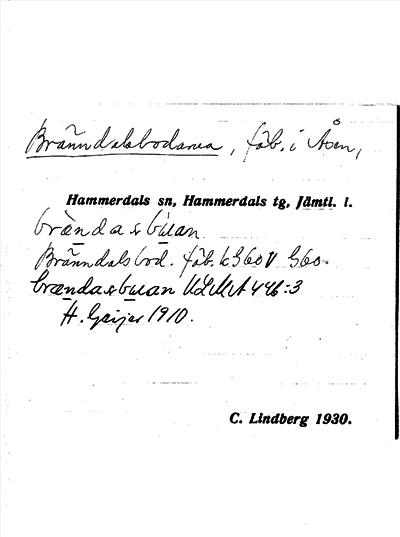 Bränndalsbodarna, fäb. i Åsen,
Hammerdals sn, Hammerdals tg, Jämtl. l.
brændasbuan
Bränndalsbod. fäb. k G60V G60.
brændasbuan ULMA 446:3
H. Geijer 1910.
C. Lindberg 1930.